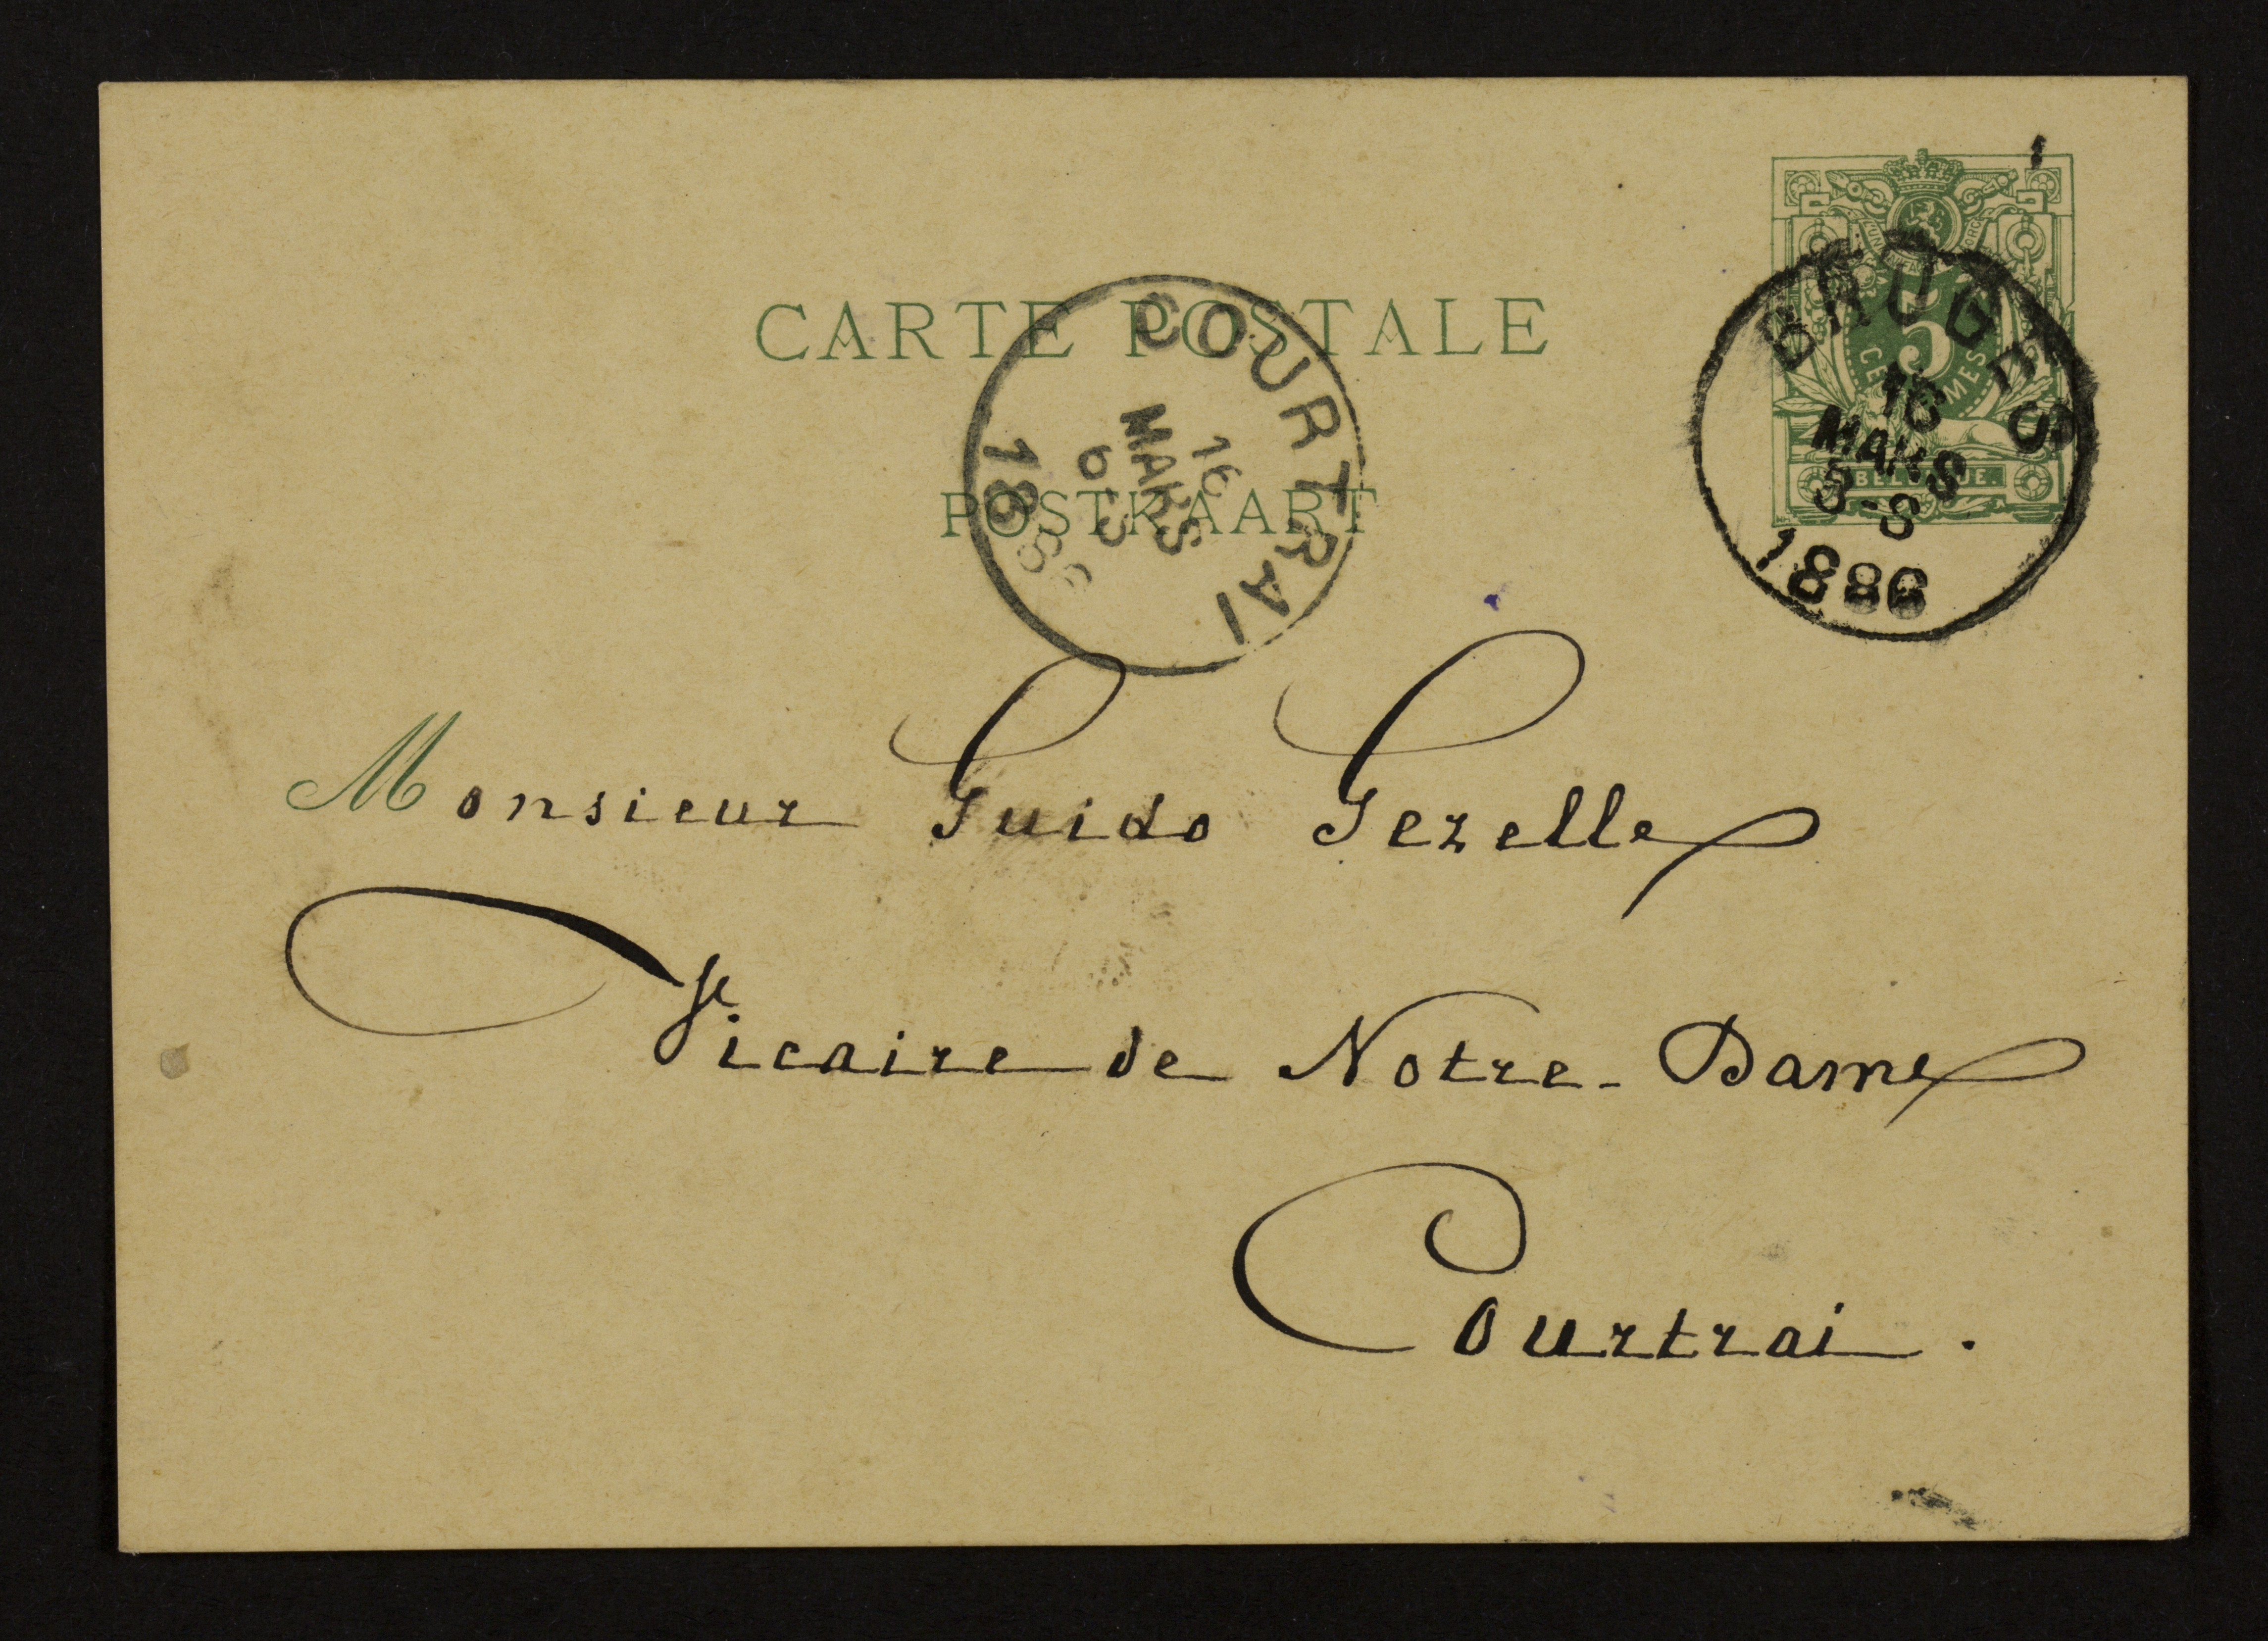 CARTE POSTALE
POSTKAART
COURTRAI
16
MARS
1886
5
CENTIMES
BELGIQUE.
BRUGES
16
MARS
1886
Monsieur Guido Gezelle
Vicaire de Notre-Dame
Courtrai.